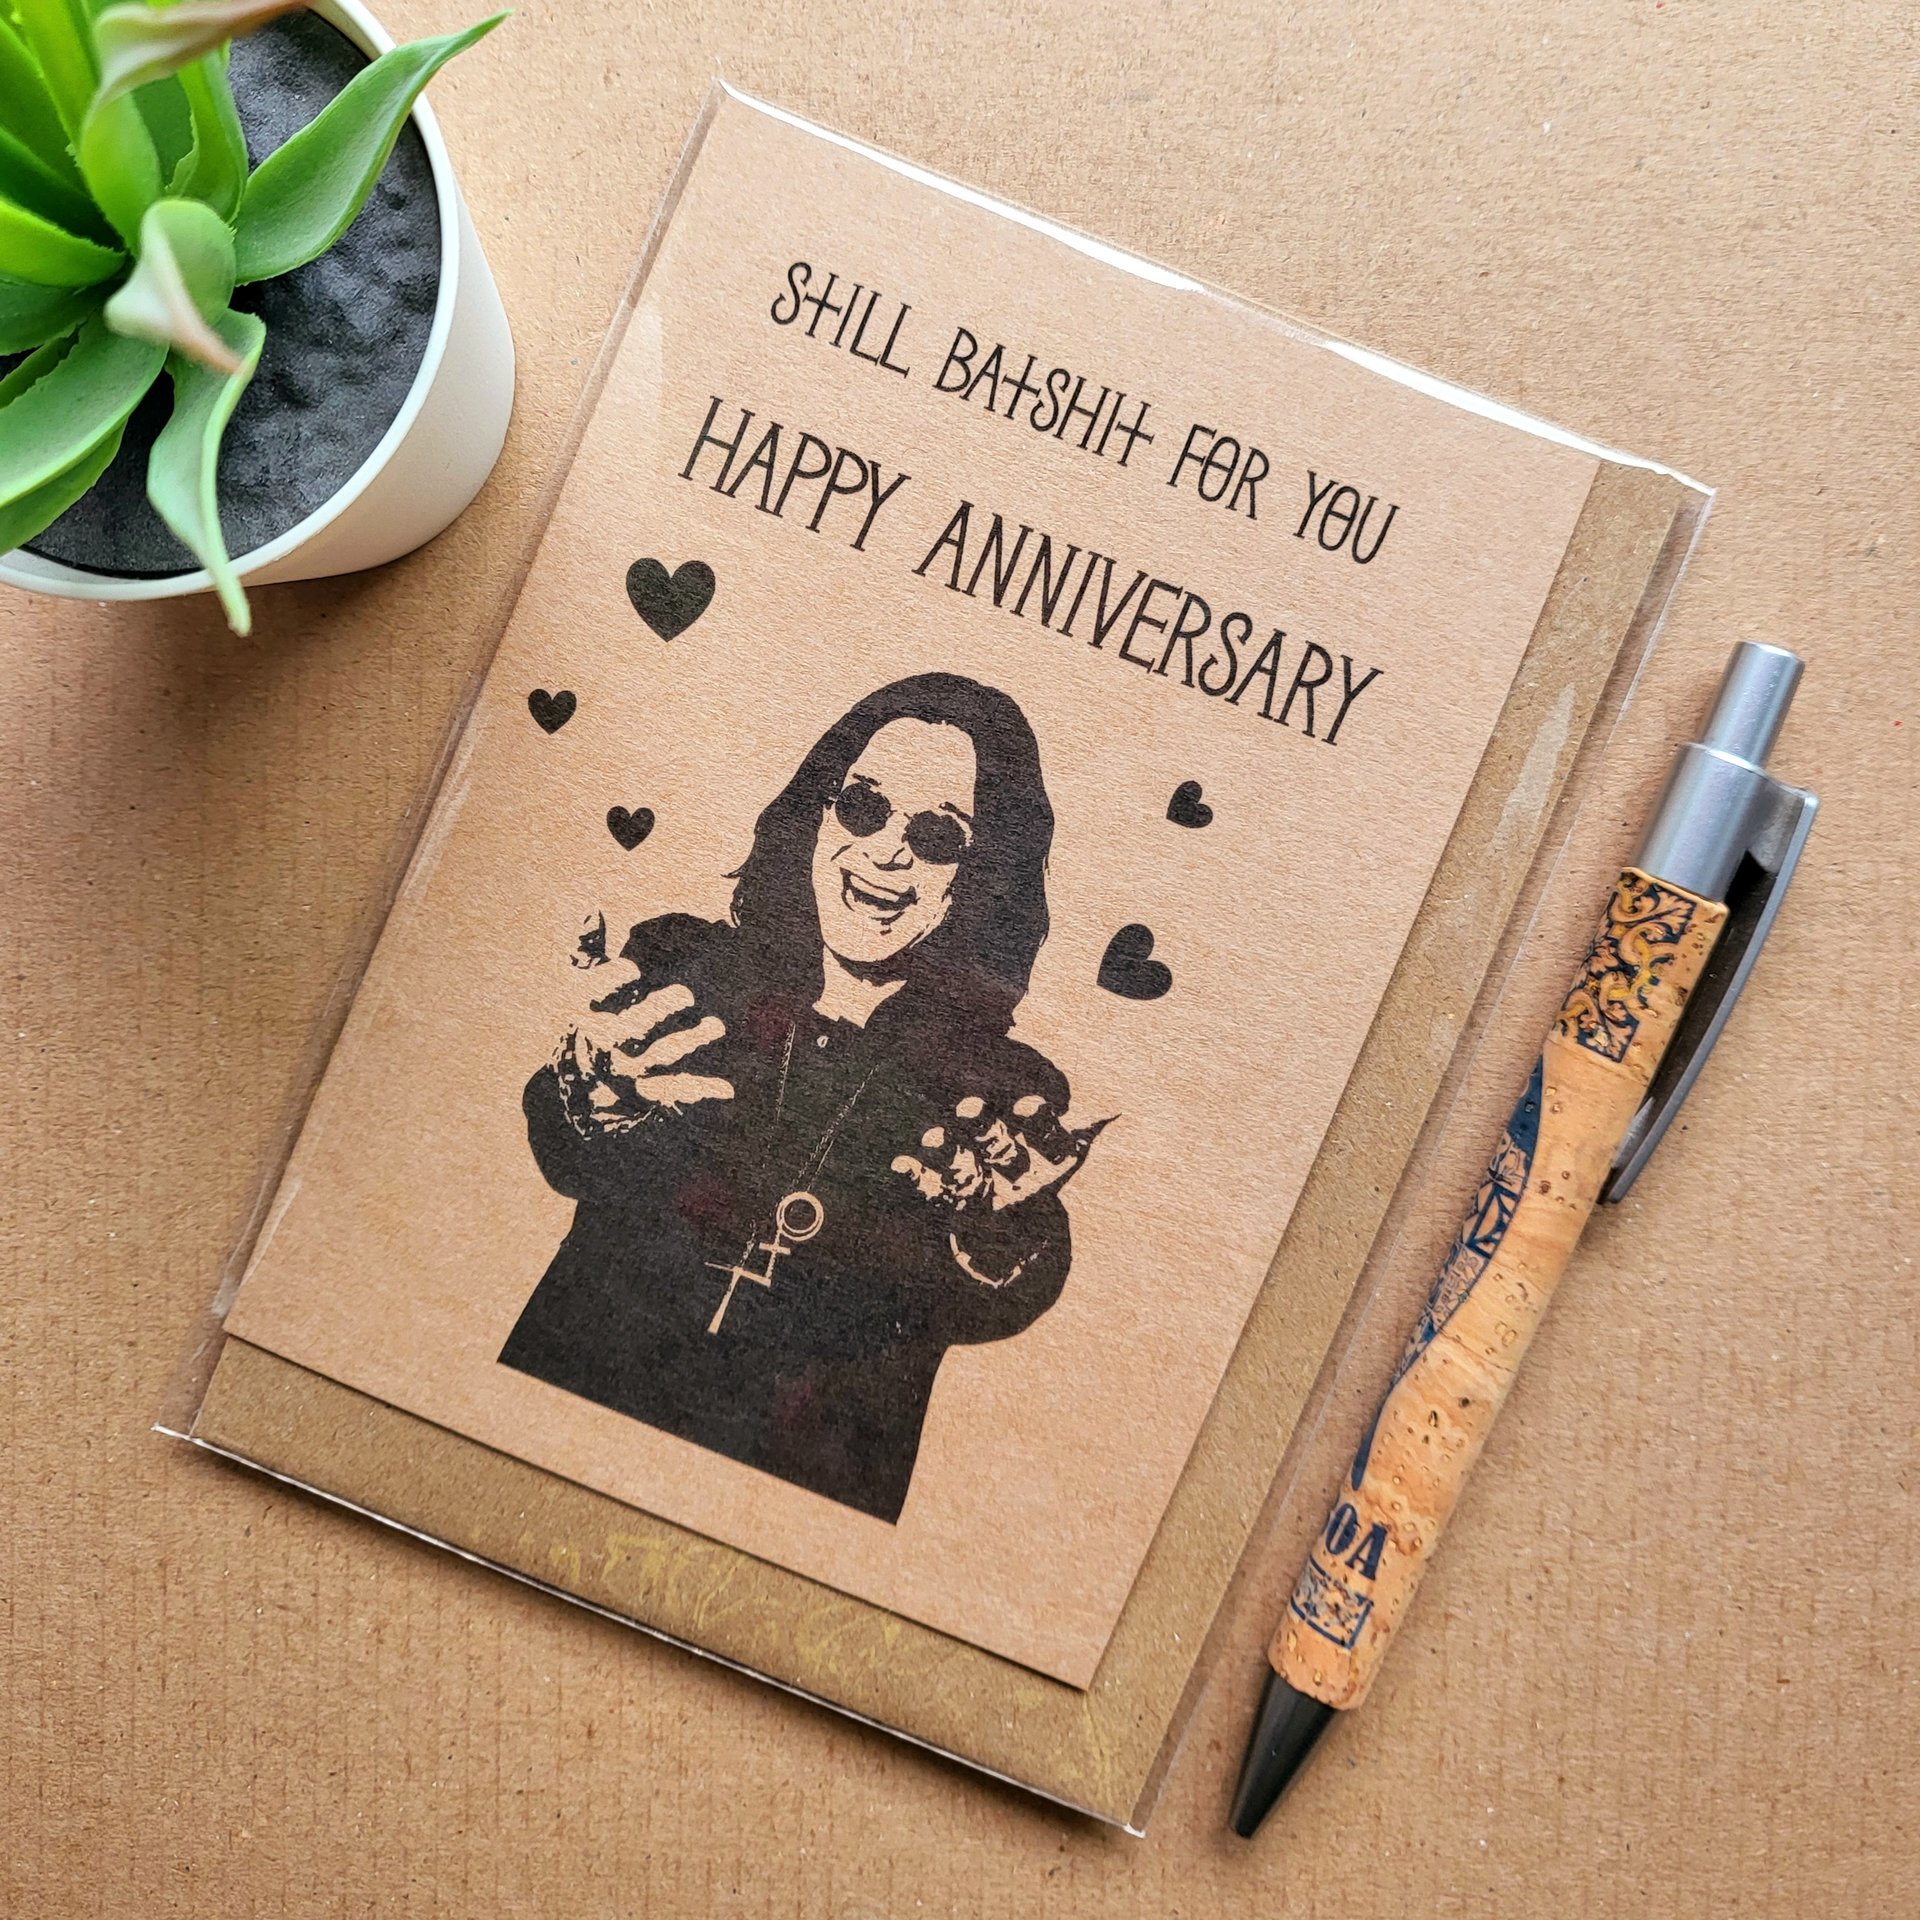 STILL BATSHIT FOR YOU
HAPPY ANNIVERSARY